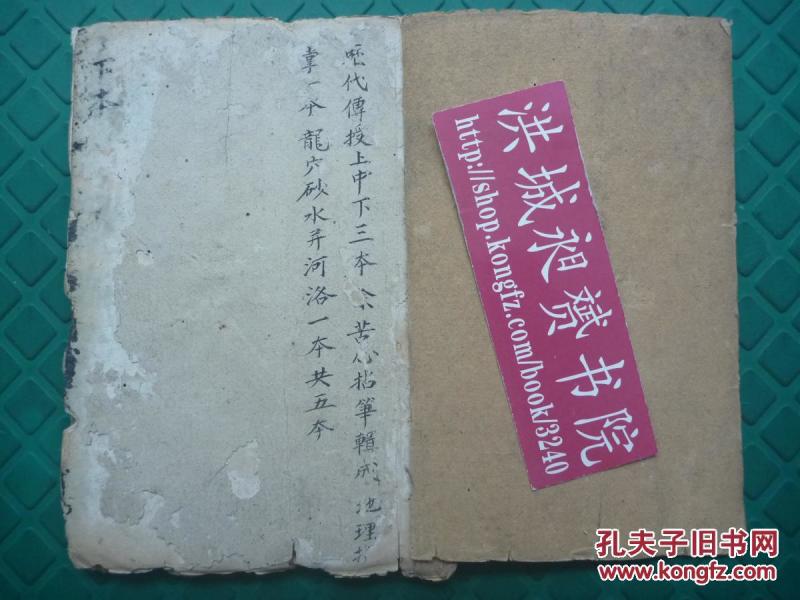 歷代傳授上中下三本余苦心拈筆輯成地理指
掌一本龍穴砂水并河洛一本共五本
下本
洪城昶赟书院
http://shop.kongfz.com/book/3240
孔夫子旧书网
www.kongfz.com